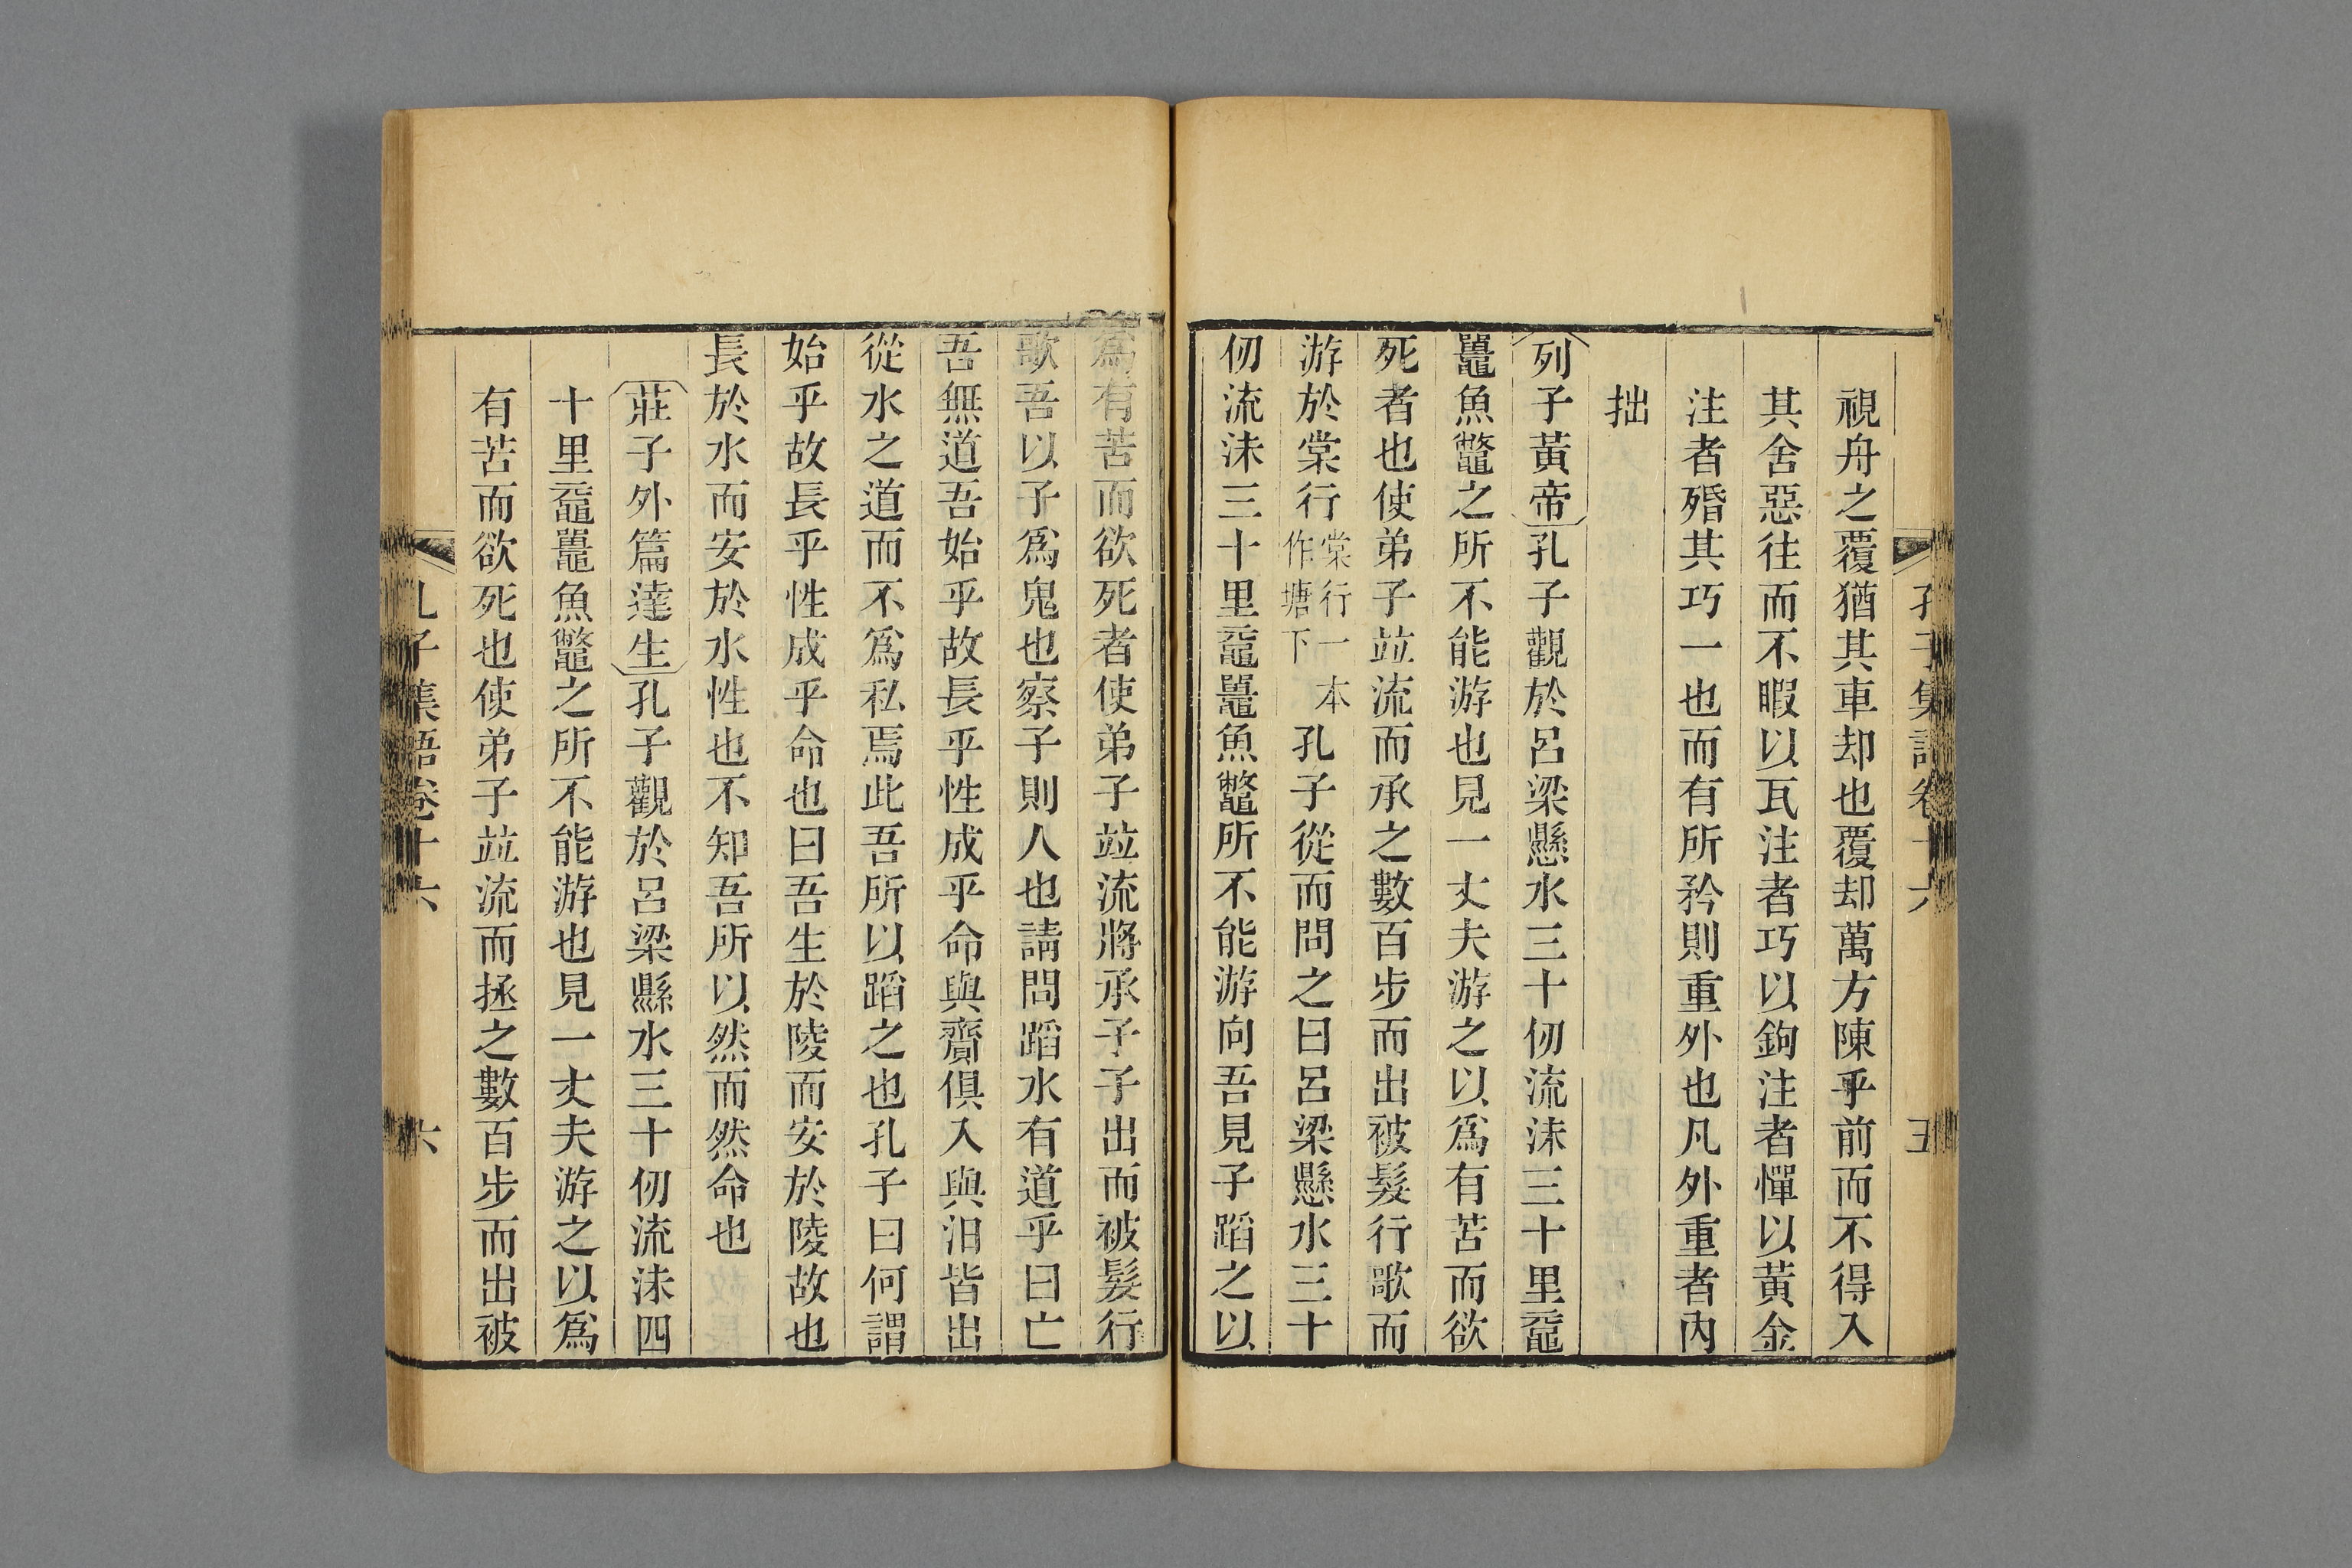 孔子集語卷十六 五
視舟之覆猶其車却也覆却萬方陳乎前而不得入
其舍惡往而不暇以瓦注者巧以鉤注者憚以黃金
注者殙其巧一也而有所矜則重外也凡外重者內
拙
列子黃帝孔子觀於呂梁懸水三十仞流沬三十里黿
鼉魚鼈之所不能游也見一丈夫游之以爲有苦而欲
死者也使弟子竝流而承之數百步而出被髮行歌而
游於棠行棠行一本作塘下孔子從而問之曰呂梁懸水三十
仞流沬三十里黿鼉魚鼈所不能游向吾見子蹈之以
爲有苦而欲死者使弟子竝流將承子子出而被髮行
歌吾以子爲鬼也察子則人也請問蹈水有道乎曰亡
吾無道吾始乎故長乎性成乎命與齎俱入與汨皆出
從水之道而不爲私焉此吾所以蹈之也孔子曰何謂
始乎故長乎性成乎命也曰吾生於陵而安於陵故也
長於水而安於水性也不知吾所以然而然命也
莊子外篇達生孔子觀於呂梁縣水三十仞流沬四
十里黿鼉魚鼈之所不能游也見一丈夫游之以爲
有苦而欲死也使弟子竝流而拯之數百步而出被
孔子集語卷十六 六